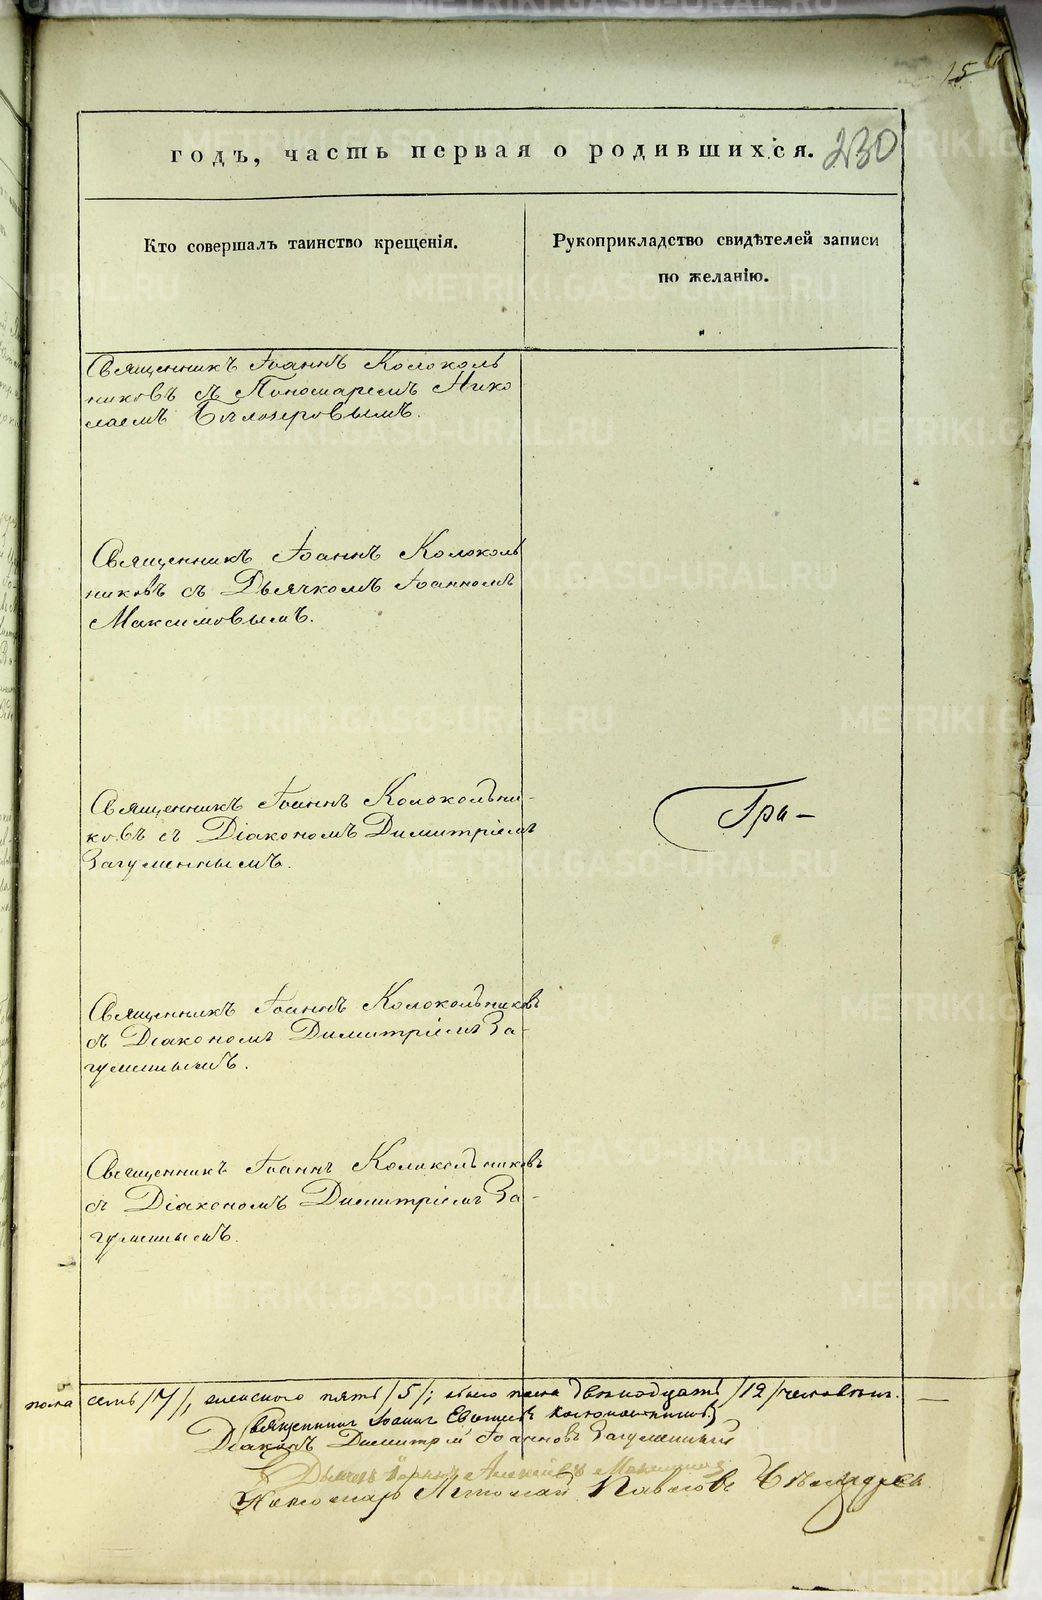 15
годъ, часть первая о родившихся. 230
Кто совершалъ таинство крещенія.
Рукоприкладство свидѣтелей записи
по желанію.
Священникъ Іоаннъ Колоколь
никовъ съ Пономаремъ Нико
лаемъ Бѣлозеровымъ.
Священникъ Іоаннъ Колоколь
никовъ съ Дьячкомъ Іоанномъ
Максимовымъ.
Священникъ Іоаннъ Колокольни-
ковъ съ Діакономъ Димитріемъ
Загуменнымъ.
Гра-
Священникъ Іоаннъ Колокольниковъ
съ Діакономъ Димитріемъ За-
гуменнымъ.
Священникъ Іоаннъ Колокольниковъ
съ Діакономъ Димитріемъ За-
гуменнымъ.
пола семь /7/, женского пять /5/; обоего пола двенадцать /12/ человѣкъ.
Священникъ Іоаннъ Колокольниковъ
Діаконъ Димитрій Іоанновъ Загуменный
Дьячекъ Максимовъ
Пономарь Николай Павловъ
METRIKI.GASO-URAL.RU